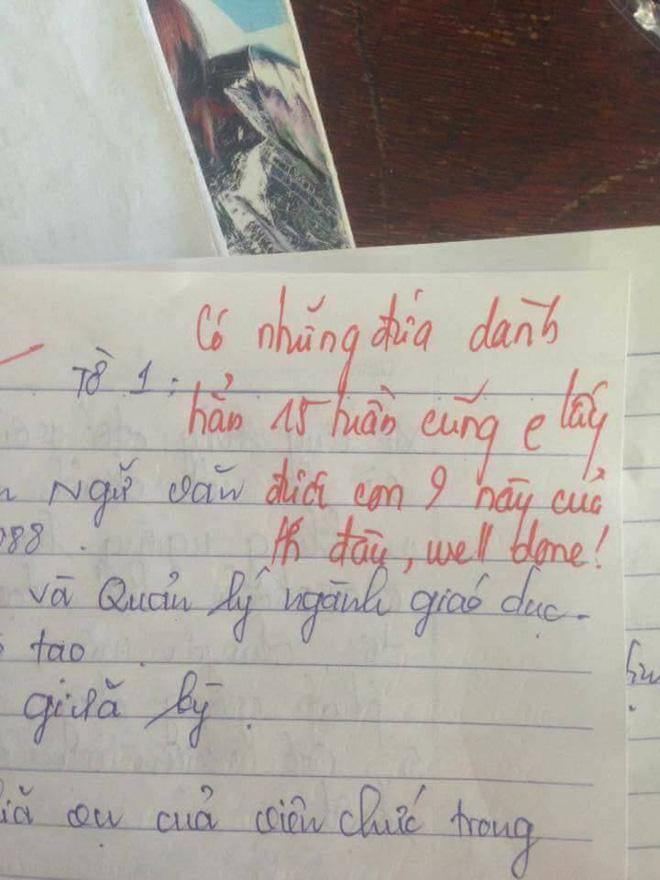 Có những đứa dành
hẳn 15 tuần cũng e lấy
được con 9 này của
th đâu, well done!
Tổ 1 :
Ngữ văn
088 .
và Quản lý ngành giáo dục.
tạo .
giữa kỳ .
vụ của viên chức trong